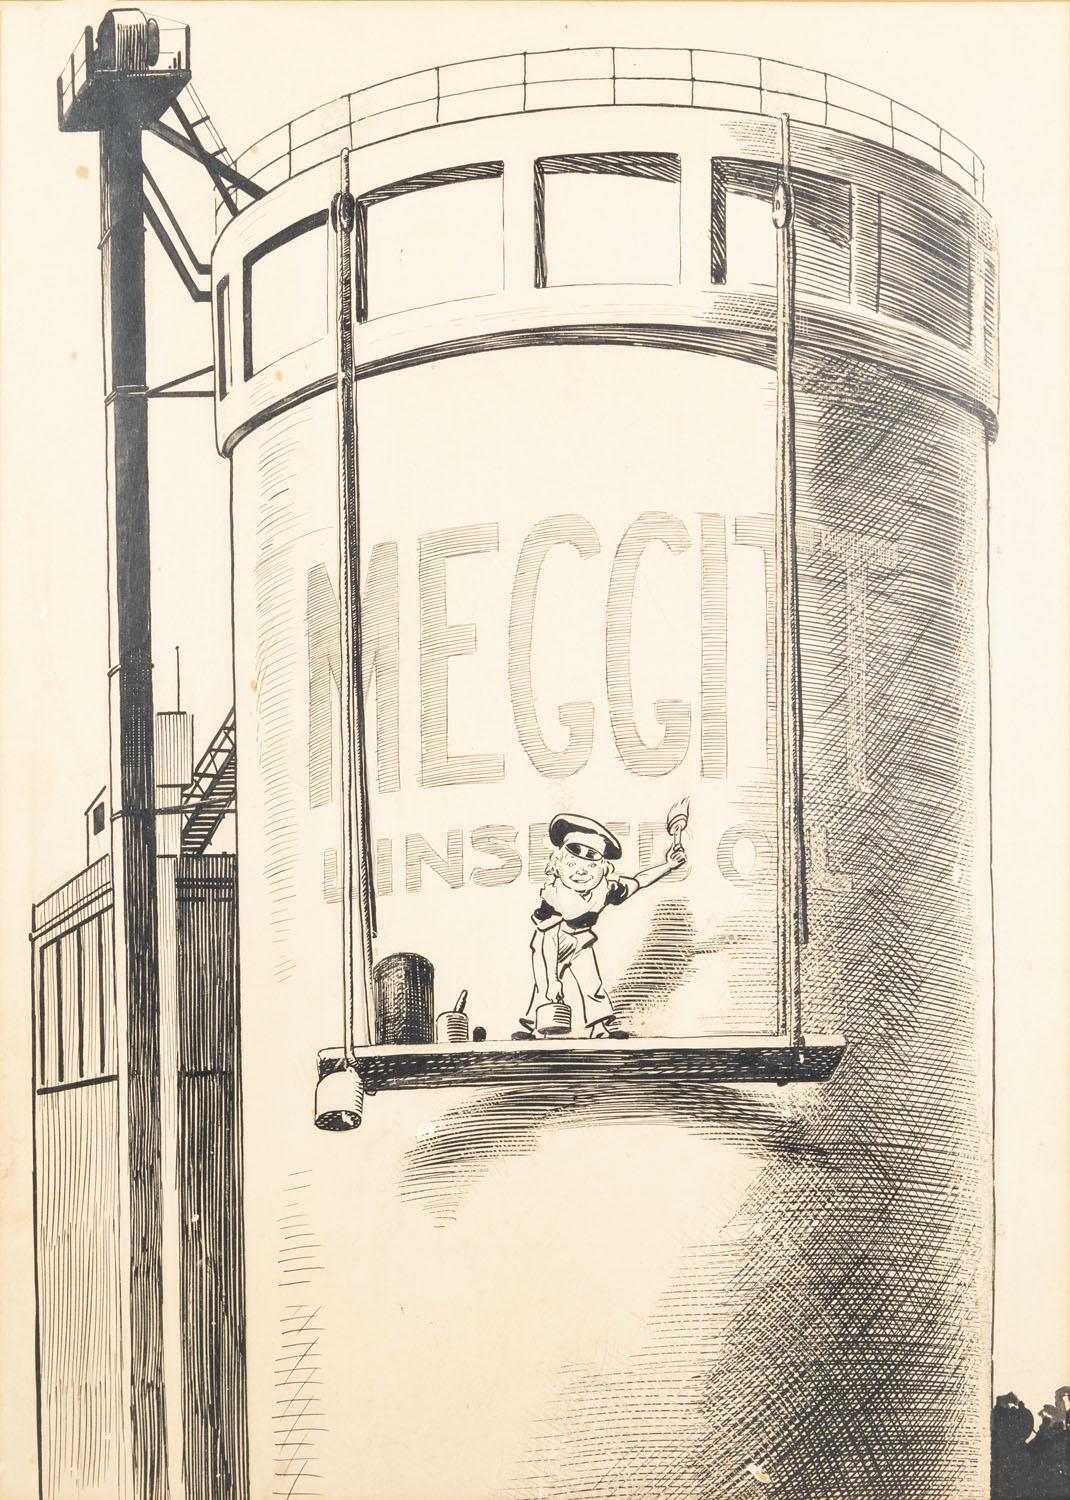 MEGGITT
LINSEED OIL